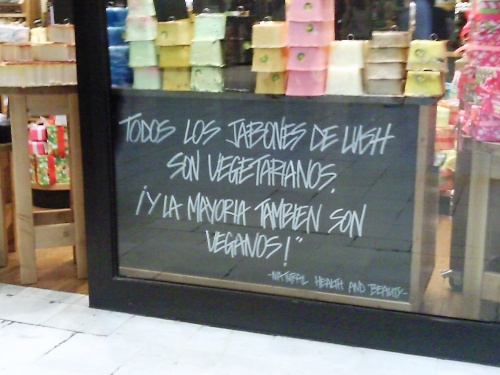 TODOS LOS JABONES DE LUSH
SON VEGETARIANOS.
¡Y LA MAYORIA TAMBIEN SON
VEGANOS!"
-NATURAL HEALTH AND BEAUTY-